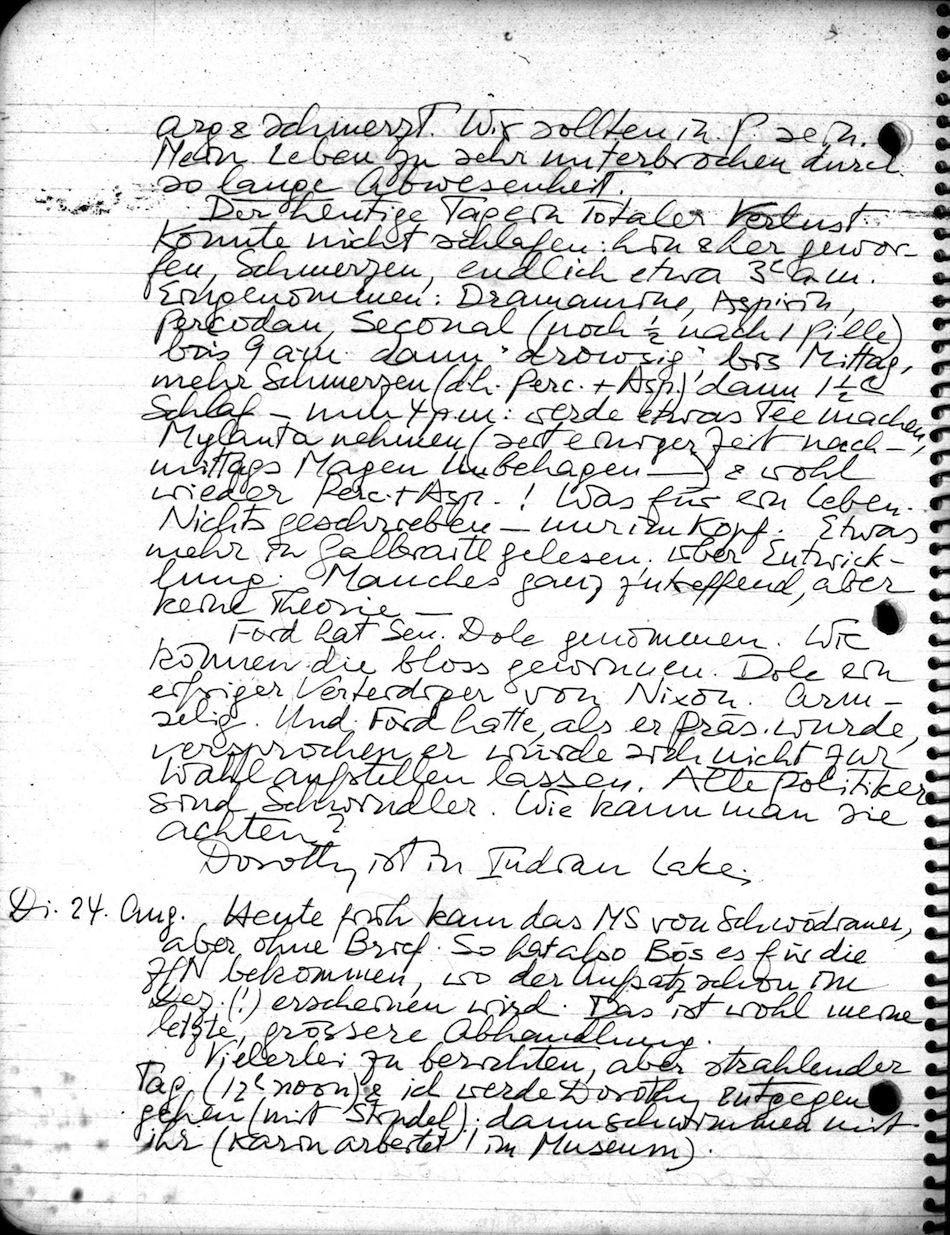 arg & schmerzt. Wir sollten in P. sein.
Mein Leben zu sehr unterbrochen durch
so lange Abwesenheit.
Der heutige Tag ein totaler Verlust
Konnte nicht schlafen: hin & her gewor-
fen, Schmerzen, endlich etwa 3ᶜ a.m.
Eingenommen: Dramamine, Aspirin,
Percodan, Seconal (noch ½ nach 1 Pille)
bis 9 am. dann "drowsig", bis Mittag,
mehr Schmerzen (d.h. Perc. + Asp) dann 1½ ᶜ
Schlaf – nun 4 pm: werde etwas Tee machen,
Mylanta nehmen (seit einiger Zeit nach-
mittags Magen Unbehagen —) & wohl
wieder Perc. + Asp. ! Was für ein Leben.
Nichts geschrieben – nur im Kopf. Etwas
mehr in Galbraith gelesen. über Entwick-
lung. Manches ganz zutreffend, aber
keine Theorie —
Ford hat Sen. Dole genommen. Wie
können die bloss gewinnen. Dole ein
eifriger Verteidiger von Nixon. Arm-
selig. Und Ford hatte, als er Präs. wurde,
versprochen er würde sich nicht zur
Wahl aufstellen lassen. Alle Politiker
sind Schwindler. Wie kann man sie
achten?
Dorothy ist in Indian Lake.
Di. 24. Aug. Heute früh kam das MS von Schwödiauer,
aber ohne Brief. So hat also Bös es für die
ZfN bekommen, wo der Aufsatz schon im
Dez. (!) erscheinen wird. Das ist wohl meine
letzte, grössere Abhandlung.
Vielerlei zu berichten, aber strahlender
Tag (12ᶜ noon) & ich werde Dorothy entgegen
gehen (mit Strudel); dann schwimmen mit
ihr (Karin arbeitet im Museum).